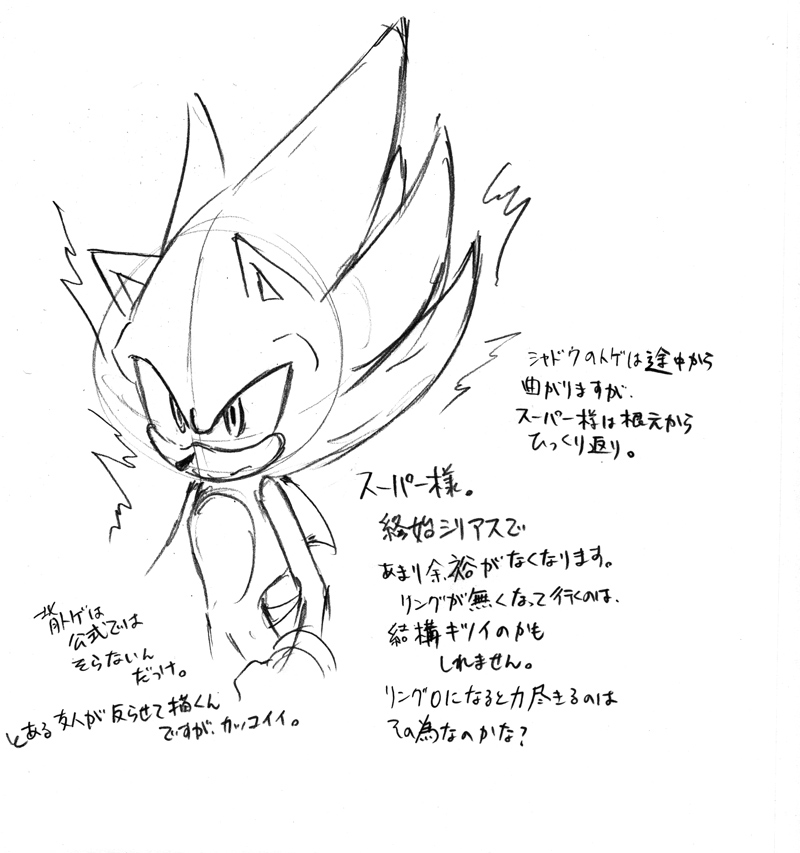 シャドウのトゲは途中から
曲がりますが、
スーパー様は根元から
ひっくり返り。
スーパー様。
終始シリアスで
あまり余裕がなくなります。
リングが無くなって行くのは、
結構キツイのかも
しれません。
リング0になると力尽きるのは
その為なのかな?
背トゲは
公式では
そらないん
だっけ。
とある友人が反らせて描くん
ですが、カッコイイ。